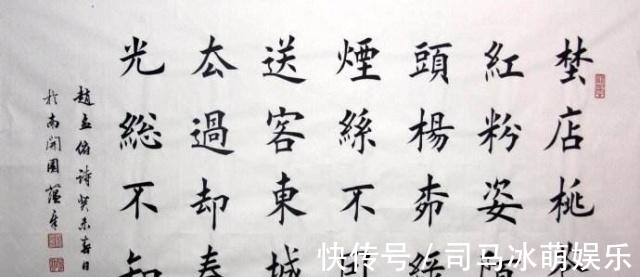 埜店桃
紅粉姿
頭楊桺
煙絲不
送客東城
厺過却春
光総不知
趙孟俯詩癸未春日
於南開園
快传号 / 司马冰萌娱乐